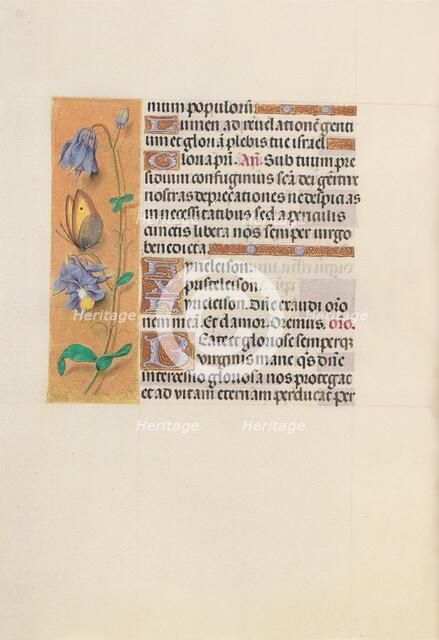 mum populorũ
Lumen ad reuelationẽ genti
um et gloriã plebis tue israel
Gloria pri. Añ. Sub tuum pre
sidium confugimus sca dei genitrix
nostras deprecationes ne despicias
in necessitatibus sed a periculis
cunctis libera nos semper uirgo
benedicta.
Kyrieleison.
Xpisteleison.
Kyrieleison. Dñe exaudi orõ
nem meã. Et clamor. Oremus. Oro.
Beate et gloriose semperq
uirginis marie q̃s dñe
intercessio gloriosa nos protegat
et ad uitam eternam perducat per
Heritage Heritage
Heritage Heritage